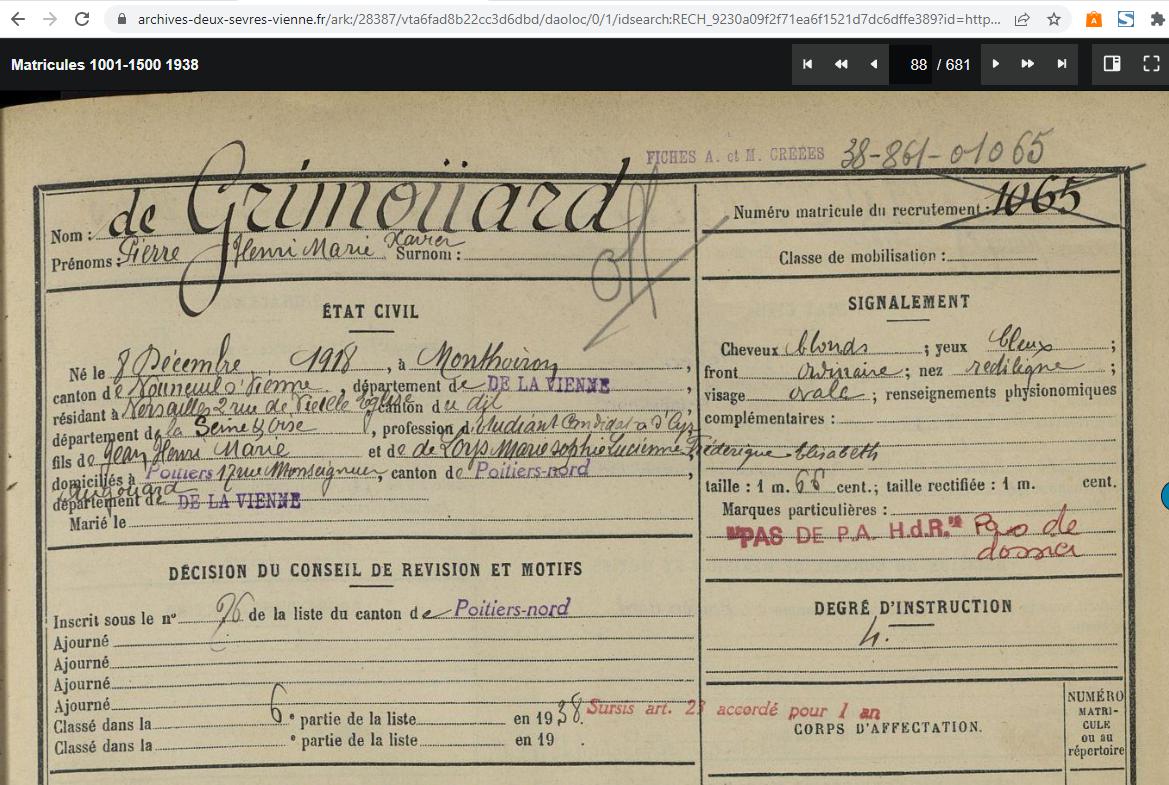 archives-deux-sevres-vienne.fr/ark:/28387/vta6fad8b22cc3d6dbd/daoloc/0/1/idsearch:RECH_9230a09f2f71ea6f1521d7dc6dffe389?id=http...
Matricules 1001-1500 1938
88 / 681
FICHES A. et M. CRÉÉES 38-861-01065
Nom : de Grimoüard
Prénoms : Pierre Henri Marie Xavier Surnom :
Off
ÉTAT CIVIL
Né le 8 Décembre 1918, à Monthoiron,
canton de Vouneuil s/ Vienne, département de DE LA VIENNE
résidant à Versailles 2 rue de Vieille Eglise canton du dit
département de la Seine & Oise, profession d'étudiant Candidat à St Cyr
fils de Jean Henri Marie et de de Lorys Marie Sophie Lucienne Fréderique Elisabeth
domiciliés à Poitiers 17 rue Monseigneur, canton de Poitiers-nord,
Augouard
département de DE LA VIENNE
Marié le
DÉCISION DU CONSEIL DE REVISION ET MOTIFS
Inscrit sous le nº 96 de la liste du canton de Poitiers-nord
Ajourné
Ajourné
Ajourné
Ajourné
Classé dans la 6e partie de la liste en 1938. Sursis art. 23 accordé pour 1 an
Classé dans la e partie de la liste en 19 .
Numéro matricule du recrutement : 1065
Classe de mobilisation :
SIGNALEMENT
Cheveux blonds ; yeux bleux ;
front ordinaire ; nez rectiligne ;
visage ovale ; renseignements physionomiques
complémentaires :
taille : 1 m. 66 cent. ; taille rectifiée : 1 m. cent.
Marques particulières :
"PAS DE P.A. H.d.R." Pas de
dossier
DEGRÉ D'INSTRUCTION
4.
CORPS D'AFFECTATION.
NUMÉRO
MATRI-
CULE
ou au
répertoire